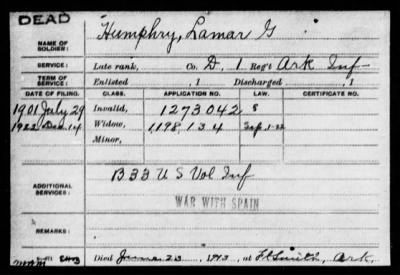 DEAD
NAME OF SOLDIER: Humphry, Lamar G
SERVICE: Late rank, Co. D, 1 Reg't Ark Inf
TERM OF SERVICE: Enlisted , 1 Discharged , 1
DATE OF FILING. CLASS. APPLICATION NO. LAW. CERTIFICATE NO.
1901 July 29 Invalid, 1273042
1922 Dec 14 Widow, 1198,134 Sep. 1-22
Minor,
ADDITIONAL SERVICES: B 33 U S Vol Inf
WAR WITH SPAIN
REMARKS:
Died June 23, at Ft Smith, Ark.